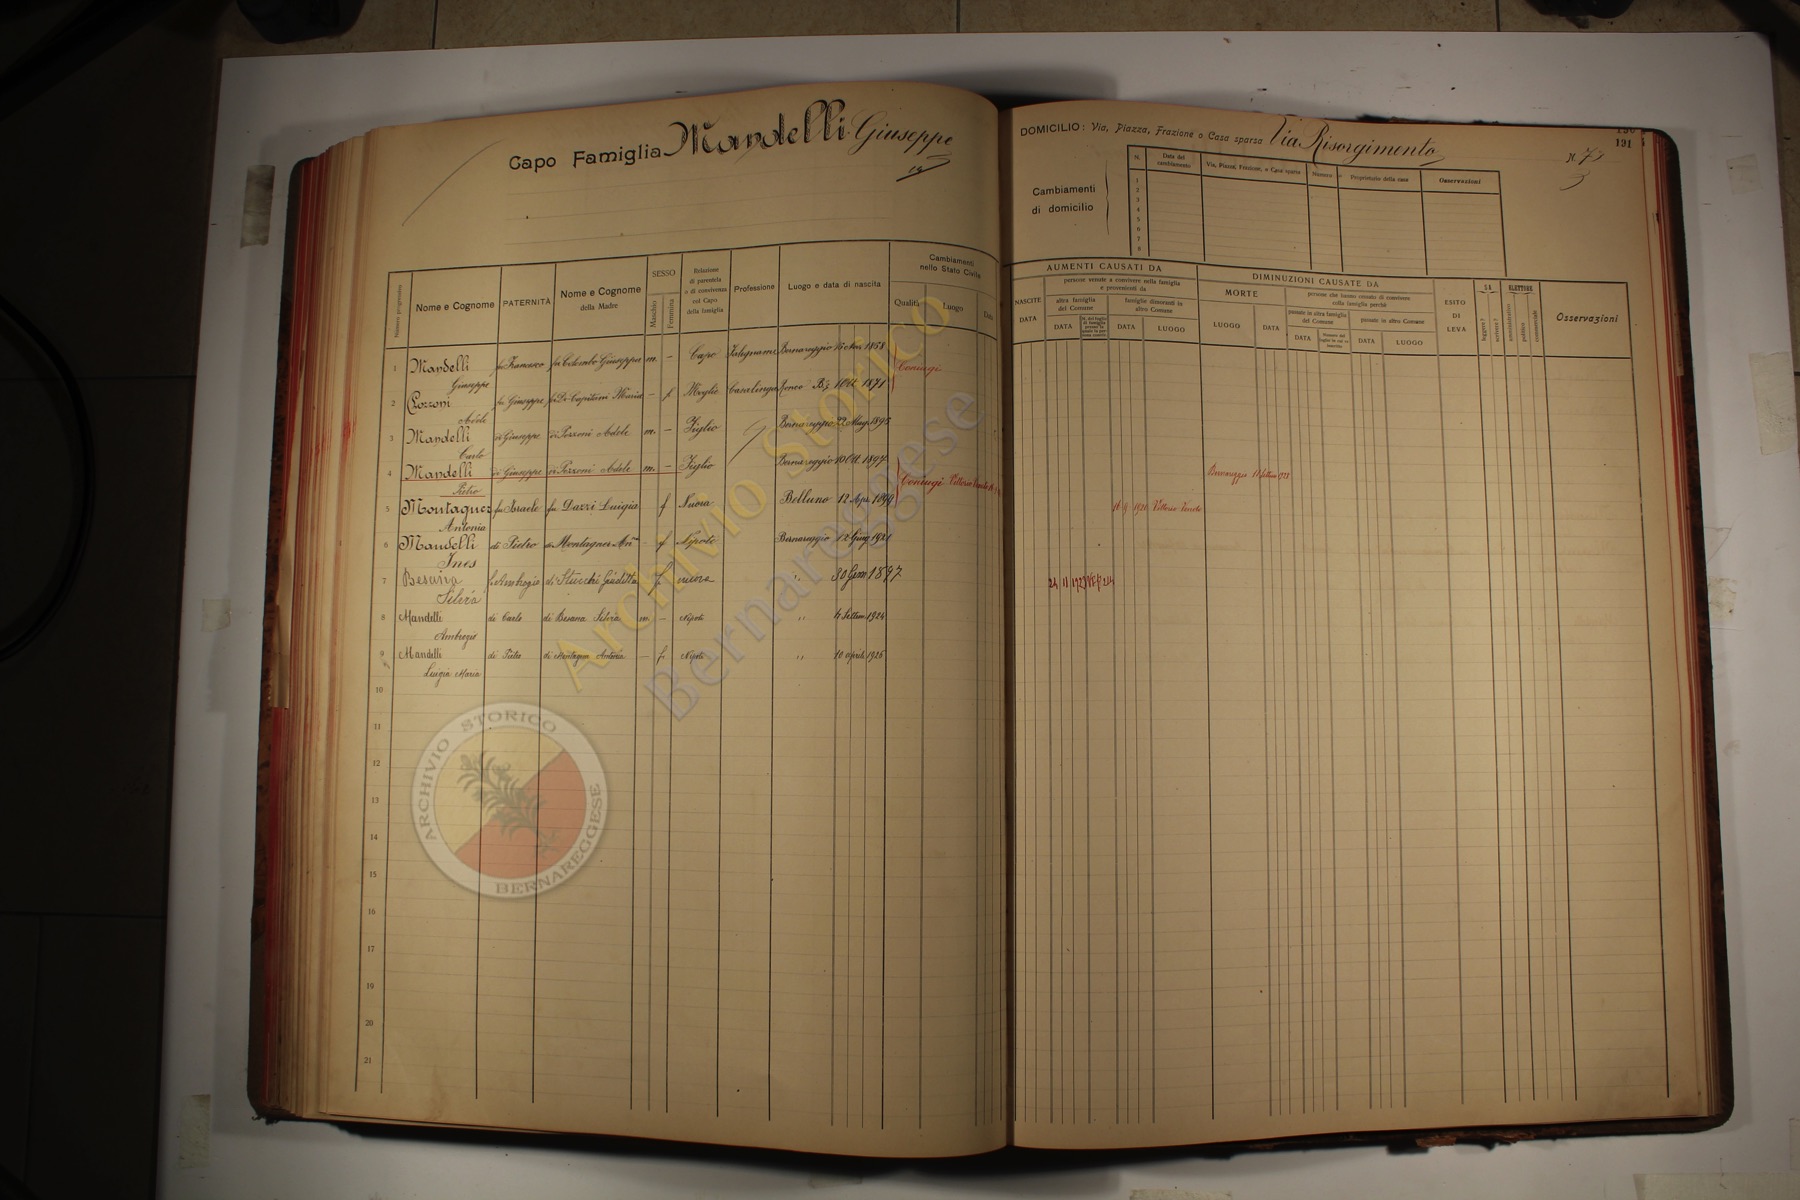 Capo Famiglia Mandelli Giuseppe
DOMICILIO: Via, Piazza, Frazione o Casa sparsa Via Risorgimento
N. 73
191
Cambiamenti
di domicilio
N.
Data del
cambiamento
Via, Piazza, Frazione, o Casa sparsa
Numero
Proprietario della casa
Osservazioni
1
2
3
4
5
6
7
8
Numero progressivo
Nome e Cognome
PATERNITÀ
Nome e Cognome
della Madre
SESSO
Maschio
Femmina
Relazione
di parentela
o di convivenza
col Capo
della famiglia
Professione
Luogo e data di nascita
Cambiamenti
nello Stato Civile
Qualità
Luogo
Data
AUMENTI CAUSATI DA
NASCITE
DATA
persone venute a convivere nella famiglia
e provenienti da
altra famiglia
del Comune
DATA
famiglie dimoranti in
altro Comune
DATA
LUOGO
DIMINUZIONI CAUSATE DA
MORTE
LUOGO
DATA
persone che hanno cessato di convivere
colla famiglia perchè
passate in altra famiglia
del Comune
DATA
passate in altro Comune
DATA
LUOGO
ESITO
DI
LEVA
SA
leggere?
scrivere?
ELETTORE
amministrativo
politico
commerciale
Osservazioni
1 Mandelli fu Francesco fu Colombo Giuseppa m. – Capo Falegname Bernareggio 1858
Giuseppe
Coniugi
2 Pozzoni fu Giuseppe De Capitani Maria – f Moglie Casalinga 10 Ott 1871
Adele
3 Mandelli di Giuseppe di Pozzoni Adele m. – Figlio Bernareggio 22 Mag. 1895
Carlo
4 Mandelli di Giuseppe di Pozzoni Adele m. – Figlio Bernareggio 10 Ott. 1897
Pietro
Coniugi Vittorio Veneto
5 Montagner fu Israele fu Dazzi Luigia f Nuora Belluno 12 Apr. 1899
Antonia
16 9 1920 Vittorio Veneto
6 Mandelli di Pietro di Montagner f Nipote Bernareggio 12 Giug 1921
Ines
7 Besana fu Ambrogio di Stucchi Giuditta f nuora ,, 30 Gen. 1897
Silvia
24 11 1923
8 Mandelli di Carlo di Besana Silvia m. – Nipote ,, Settem. 1924
Ambrogio
9 Mandelli di Pietro di Montagner Antonia – f. Nipote ,, 10 aprile 1926
Luigia Maria
10
11
12
13
14
15
16
17
18
19
20
21
Archivio Storico
Bernareggese
ARCHIVIO STORICO
BERNAREGGESE